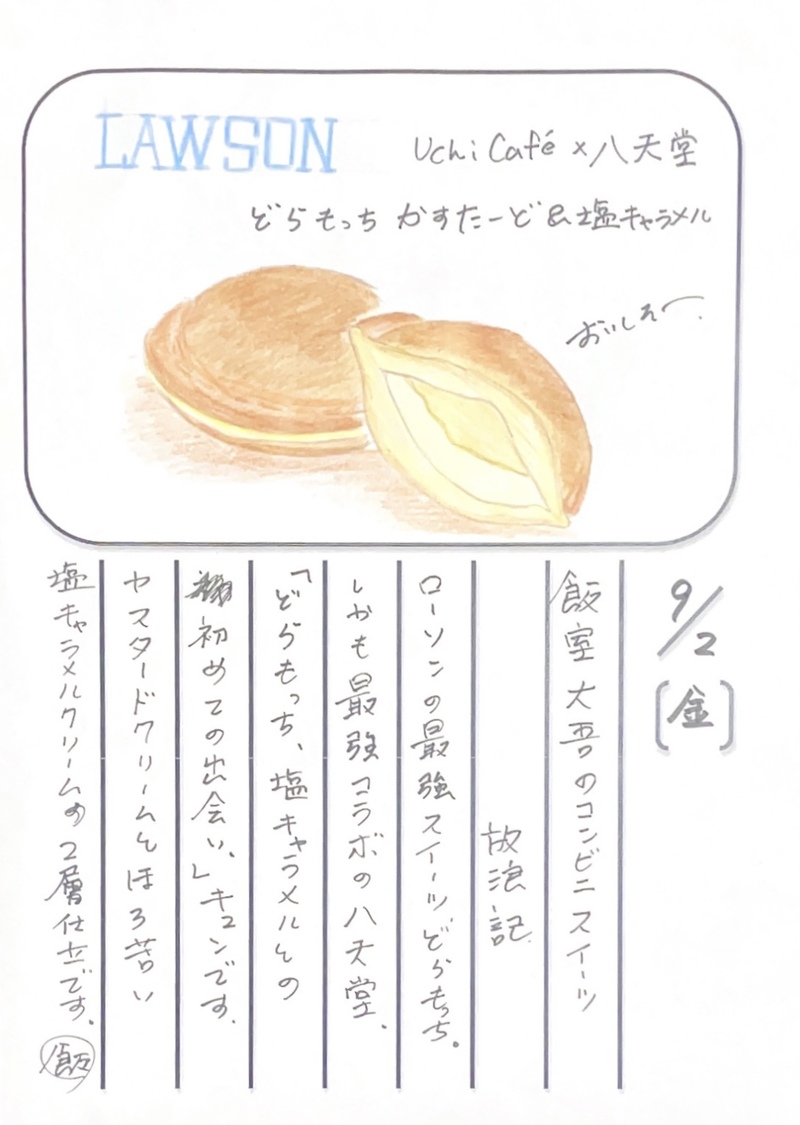 LAWSON
Uchi Café×八天堂
どらもっち かすたーど&塩キャラメル
おいしそー.
9/2
[金]
飯室大吾のコンビニスイーツ
放浪記.
ローソンの最強スイーツ、どらもっち。
しかも最強コラボの八天堂.
「どらもっち、塩キャラメルとの
初めての出会い、」キュンです.
カスタードクリームとほろ苦い
塩キャラメルクリームの2層仕立です.
飯